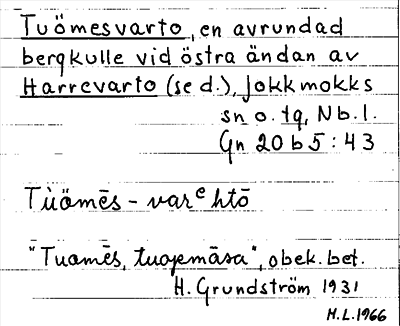 Tuömesvarto, en avrundad
bergkulle vid östra ändan av
Harrevarto (se d.), Jokkmokks
sn o. tg, Nb. l.
Gn 20 b 5 : 43
Tùömēs - varᵉhtō
"Tuomēs, tuopmāsa", obek. bet.
H. Grundström 1931
H.L.1966